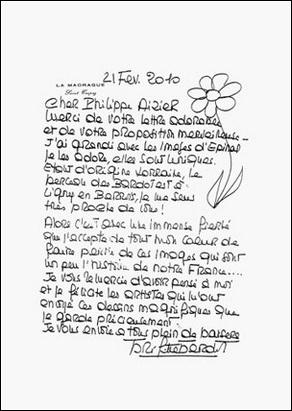 21 Fév. 2010
LA MADRAGUE
Saint Tropez
Cher Philippe
Merci de votre lettre adorable
et de votre proposition merveilleuse -
J'ai grandi avec les Images d'Epinal
je les adore, elles sont uniques.
Etant d'origine Lorraine, le
berceau des Bardot est à
Ligny en Barrois, je me sens
très proche de vous !
Alors c'est avec une immense fierté
que j'accepte de tout mon coeur de
faire partie de ces images qui sont
un peu l'histoire de notre France....
Je vous remercie d'avoir pensé à moi
et je félicite les artistes qui m'ont
envoyé ces dessins magnifiques que
je garde précieusement.
Je vous envoie à tous plein de baisers
Brigitte Bardot